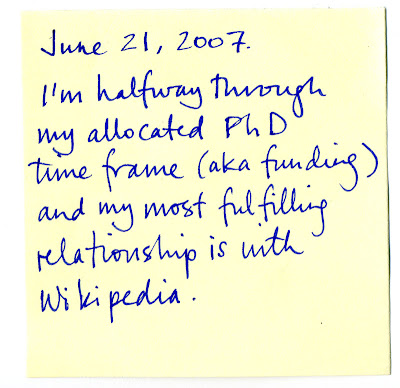 June 21, 2007.
I'm halfway through
my allocated PhD
time frame (aka funding)
and my most fulfilling
relationship is with
Wikipedia.